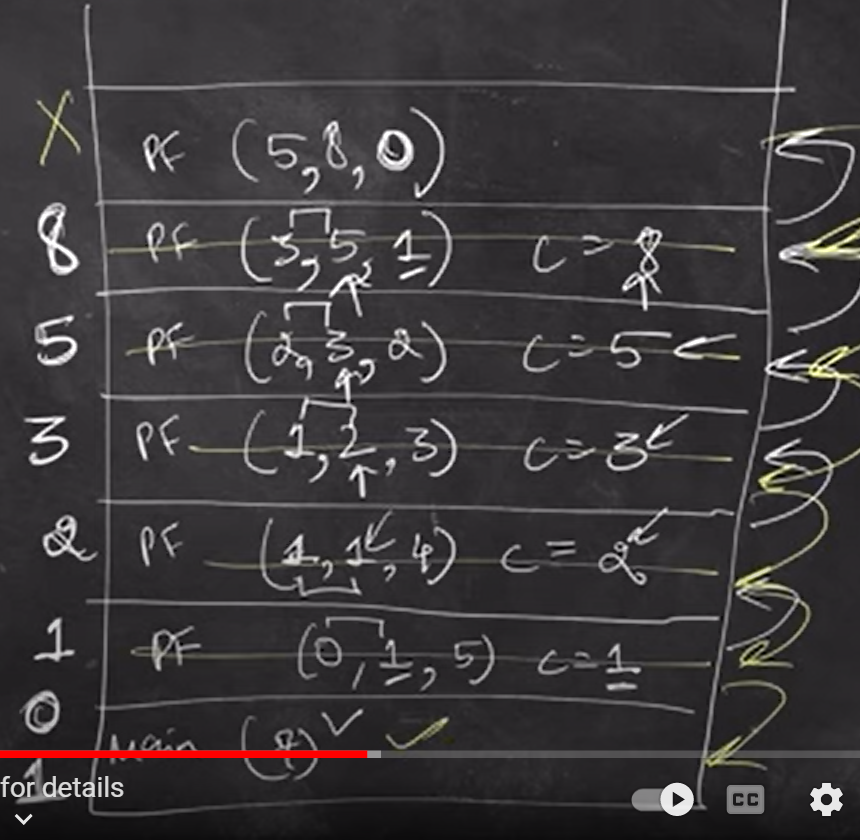 X PF (5,8,0)
8 PF (3,5,1) C=8
5 PF (2,3,2) C=5
3 PF (1,2,3) C=3
2 PF (1,1,4) C=2
1 PF (0,1,5) C=1
0
Main (7)
1
for details
CC